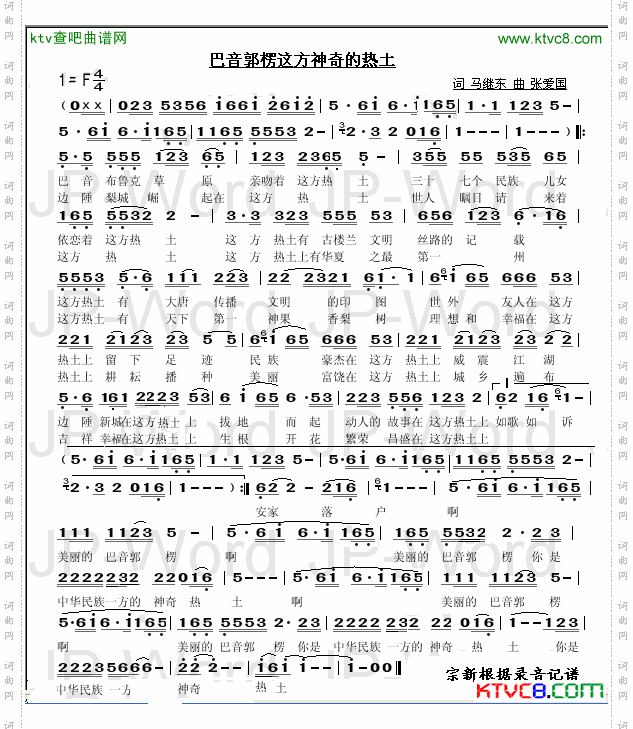 ktv查吧曲谱网
www.ktvc8.com
巴音郭楞这方神奇的热土
1=F 4/4
词 马继东 曲 张爱国
(0xx | 023 5356 i66i 26i2 | 5·6i 6·i65 | 1 123 5- |
5·6i 6·i165 | 1165 5553 2- | 3/2·3 2 016 | 1--- | 1---) ‖:
5·5 555 123 65 | 123 2365 5- | 355 55 535 53 |
巴 音 布鲁克 草 原 亲吻着 这方热 土 三十 七个 民族 儿女
边 陲 梨城 崛 起在 这方 热 土 世人 瞩目 请 来着
165 5532 2 - | 3·3 323 555 53 | 656 123 6·16 |
依恋着 这方热 土 这 方 热土有 古楼兰 文明 丝路的 记 载
这方 热 土 这 方 热土上有华夏 之最 第一 州
5553 5·6 111 223 | 22 2321 61·1 | 6·i65 666 53 |
这方热土 有 大唐 传播 文明 的印 图 世 外 友人在 这方
这方热土 有 天下 第一 神果 香梨 树 理想 和 幸福在 这方
221 2123 23 5 5 | 6·i65 666 53 | 221 2123 23 2 2 |
热土上 留 下 足 迹 民 族 豪杰在 这方 热土上 威 震 江 湖
热土上 耕 耘 播 种 美 丽 富饶在 这方 热土上 城 乡 遍 布
5·6 161 2223 53 | 6 i 65 6 53 | 5·6 161 2223 12 | 62 16 1- |
边 陲 新城在这方 热土 上 拔 地 而 起 动人的 故事在 这方热土上 如歌 如 诉
吉 祥 幸福在这方热土 上 生 根 开 花 繁荣 昌盛在 这方热土上
(5·6i 6·i165 | 1·1 123 5- | 5·6i 6·i165 | 1165 5553 2- |
3/2·3 2 016 | 1--- ):‖ 62 2 - 216 | 1--- | 5·6i 6·i65 |
安家 落 户 啊
111 1123 5 - | 5·6i 6·i 165 | 165 5532 2·123 |
美丽的 巴音郭 楞 啊 美丽的 巴音郭 楞 你 是
2222232 22016 | 5--- | 5·6i 6·i165 | 111 1123 5 - |
中华民族一方的 神奇 热 土 啊 美丽的 巴音郭 楞
5·6i6·i165 | 165 5553 2·123 | 2222232 22016 | 5--123 |
啊 美丽的 巴音郭 楞 你是 中华民族一方的 神奇 热 土 你是
22235666- | 22-- | 161 1 - | 1-00 ‖
中华民族 一方 神奇 热 土
宗新根据录音记谱
KTVC8.com
JP-Word JP-Word
JP-Word JP-Word
JP-Word JP-Word
JP-Word JP-Word
词曲网